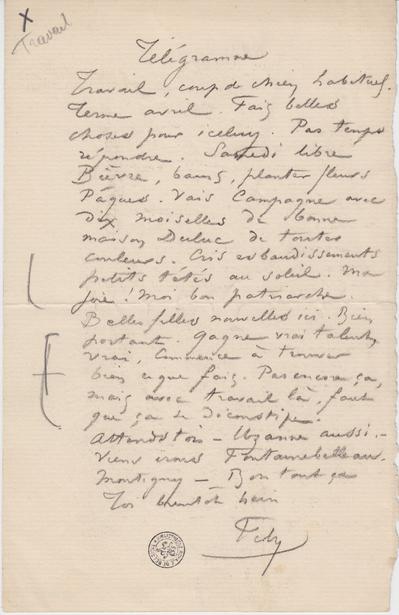 X
Travail
Télégramme
Travail, coup de chien habituel.
Terme avril. Fais belles
choses pour iceluy. Pas temps
répondre. Samedi libre
Bièvre, bains, planter fleurs
Pâques. Vais Campagne avec
dix moiselles de bonne
maison Duluc de toutes
couleurs. Cris esbaudissements
petits tétés au soleil. Ma
joie! Moi bon patriarche.
Belles filles nouvelles ici. Bien
portant. Gagne vrai talent,
vrai, Commence à trouver
bien ce que fais. Pas encore ça,
mais avec travail là, faut
que ça se déconstipe.
Attends toi – Uzanne aussi. –
Viens irons Fontainebleau.
Montigny – Bon tout ça
Toi bientôt hein
Fély